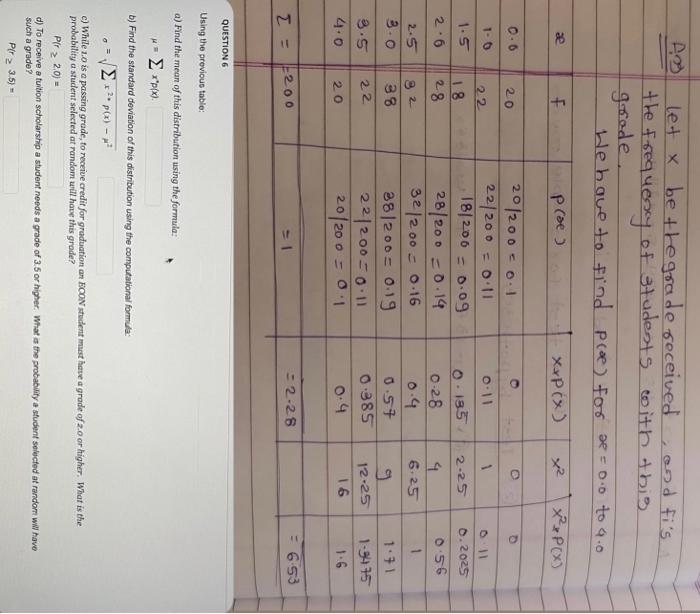 Ans let x be the grade received, and fi's
the frequency of students with this
grade.
We have to find p(x) for x = 0.0 to 4.0
x f p(x) x*p(x) x² x²*p(x)
0.0 20 20/200 = 0.1 0 0 0
1.0 22 22/200 = 0.11 0.11 1 0.11
1.5 18 18/200 = 0.09 0.135 2.25 0.2025
2.0 28 28/200 = 0.14 0.28 4 0.56
2.5 32 32/200 = 0.16 0.4 6.25 1
3.0 38 38/200 = 0.19 0.57 9 1.71
3.5 22 22/200 = 0.11 0.385 12.25 1.3475
4.0 20 20/200 = 0.1 0.4 16 1.6
Σ = =200 =1 =2.28 =6.53
QUESTION 6
Using the previous table:
a) Find the mean of this distribution using the formula:
μ = ∑ x*p(x).
b) Find the standard deviation of this distribution using the computational formula:
σ = √∑ x²* p(x) − μ²
c) While 1.0 is a passing grade, to receive credit for graduation an ECON student must have a grade of 2.0 or higher. What is the
probability a student selected at random will have this grade?
P(r ≥ 2.0) =
d) To receive a tuition scholarship a student needs a grade of 3.5 or higher. What is the probability a student selected at random will have
such a grade?
P(r ≥ 3.5) =